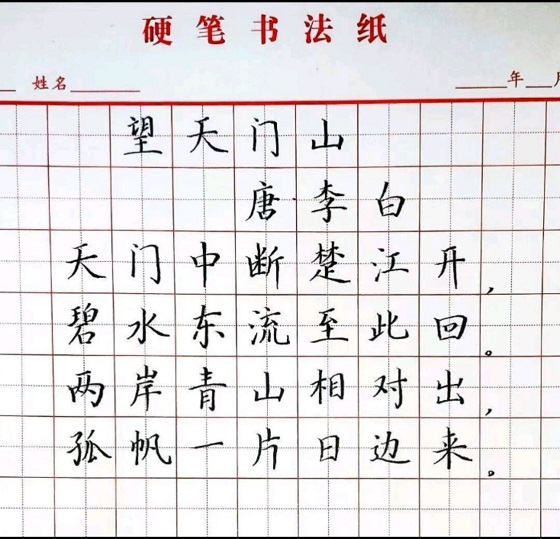 硬笔书法纸
姓名 年 月
望天门山
唐·李白
天门中断楚江开，
碧水东流至此回。
两岸青山相对出，
孤帆一片日边来。